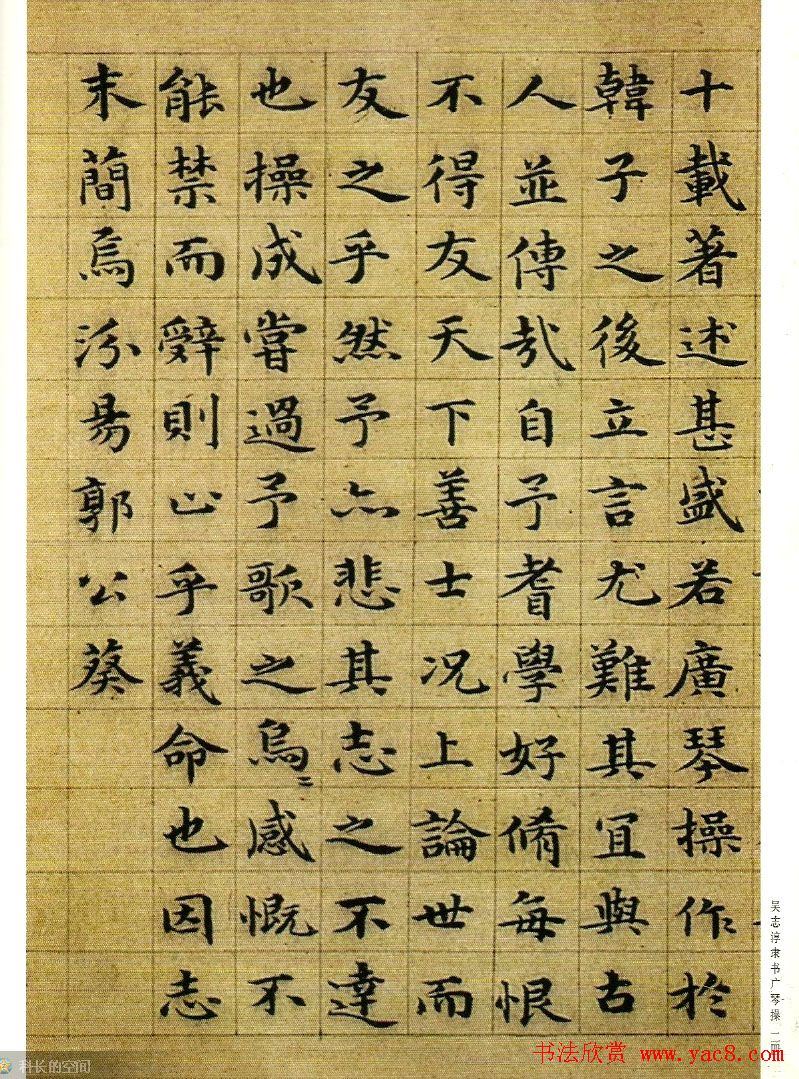 十載著述甚盛若廣琴操作於
韓子之後立言尤難其宜與古
人並傳哉自予耆學好脩每恨
不得友天下善士況上論世而
友之乎然予亦悲其志之不達
也操成嘗過予歌之烏〻感慨不
能禁而辤則止乎義命也因志
末簡焉汾昜郭公葵
吴志淳隶书广琴操 二冊
科长的空间
书法欣赏 www.yac8.com